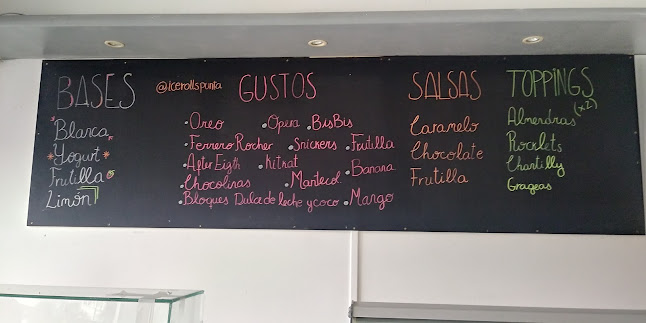 BASES
Blanca
Yogurt
Frutilla
Limón
@Icerollspunta
GUSTOS
Oreo Opera BisBis
Ferrero Rocher Snickers Frutilla
After Eigth Kitkat Banana
Chocolinas Mantecol
Bloques Dulce de leche y coco Mango
SALSAS
Caramelo
Chocolate
Frutilla
TOPPINGS
(x2)
Almendras
Rocklets
Chantilly
Grageas